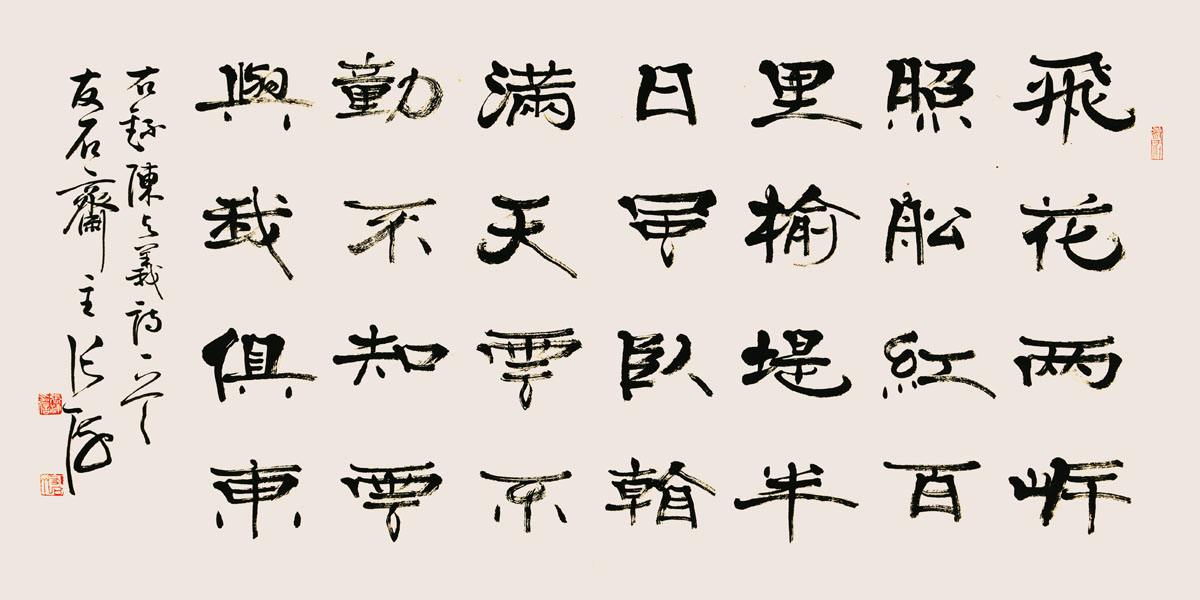 飛花两岸
照舩紅百
里榆堤半
日風臥看
滿天雲不
動不知雲
與我俱東
右錄陳与義詩一首
友石齋主